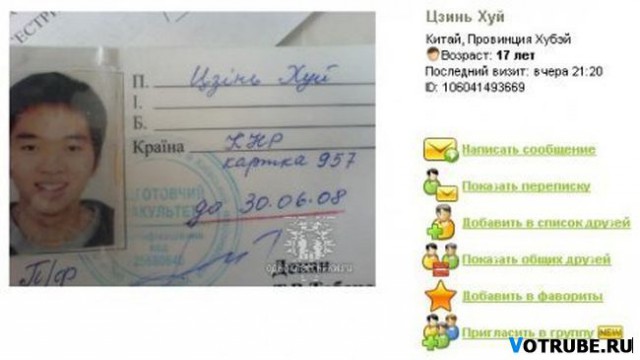 П. Цзінь Хуй
І.
Б.
Країна КНР
картка 957
до 30.06.08
ГОТОВЧИЙ
АКУЛЬТЕТ
П/Ф
Цзинь Хуй
Китай, Провинция Хубэй
Возраст: 17 лет
Последний визит: вчера 21:20
ID: 106041493669
Написать сообщение
Показать переписку
Добавить в список друзей
Показать общих друзей
Добавить в фавориты
Пригласить в группу NEW
VOTRUBE.RU